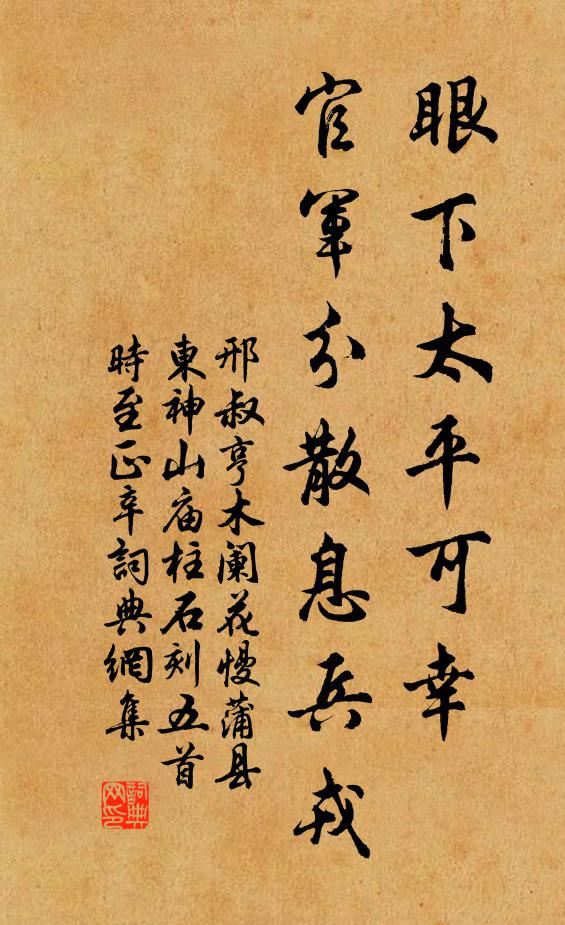 眼下太平可幸
官軍分散息兵戎
邢叔亨木闌花慢蒲县
東神山庙柱石刻五首
時至正辛詞典網集
詞典
网印